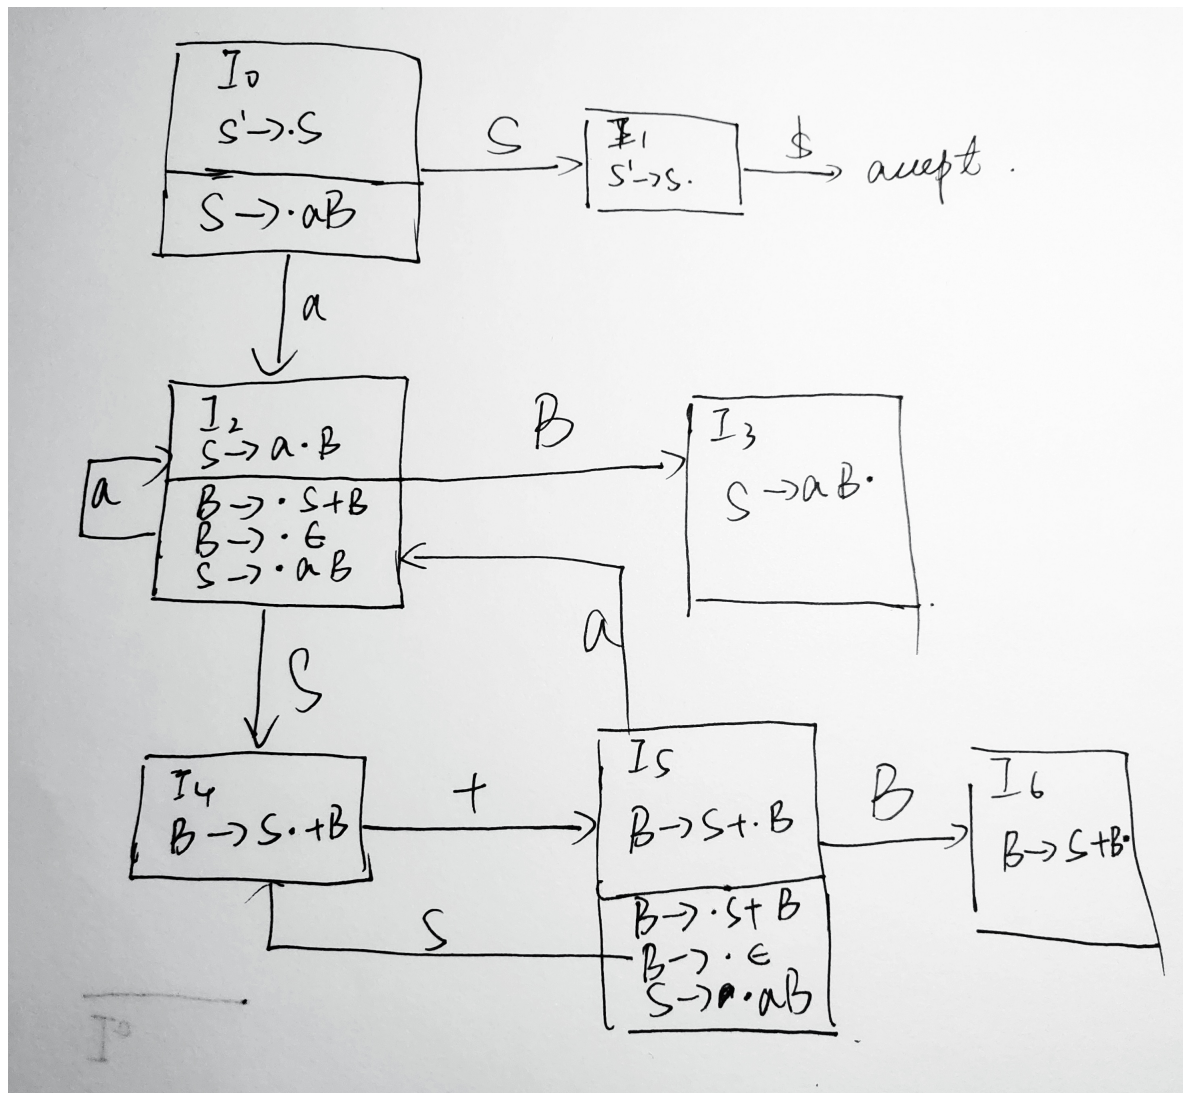 I0
S'→·S
S→·aB
S
I1
S'→S.
$
accept.
a
I2
S→a·B
B→·S+B
B→·ϵ
S→·aB
a
B
I3
S→aB·
a
S
I4
B→S·+B
+
I5
B→S+·B
B→·S+B
B→·ϵ
S→·aB
B
I6
B→S+B·
S